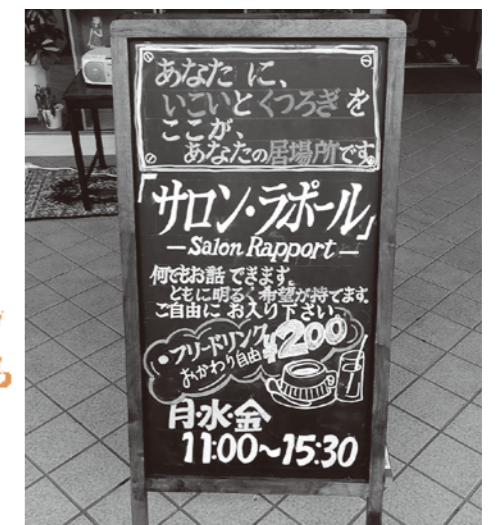 あなたに、
いこいとくつろぎを
ここが、
あなたの居場所です。
「サロン・ラポール」
— Salon Rapport —
何でもお話できます。
ともに明るく希望が持てます。
ご自由にお入り下さい。
•フリードリンク ¥200
おかわり自由
月・水・金
11:00~15:30